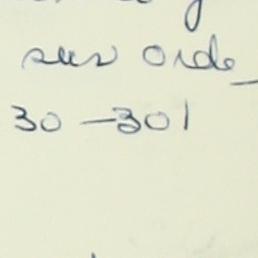 sus orde_
30-301